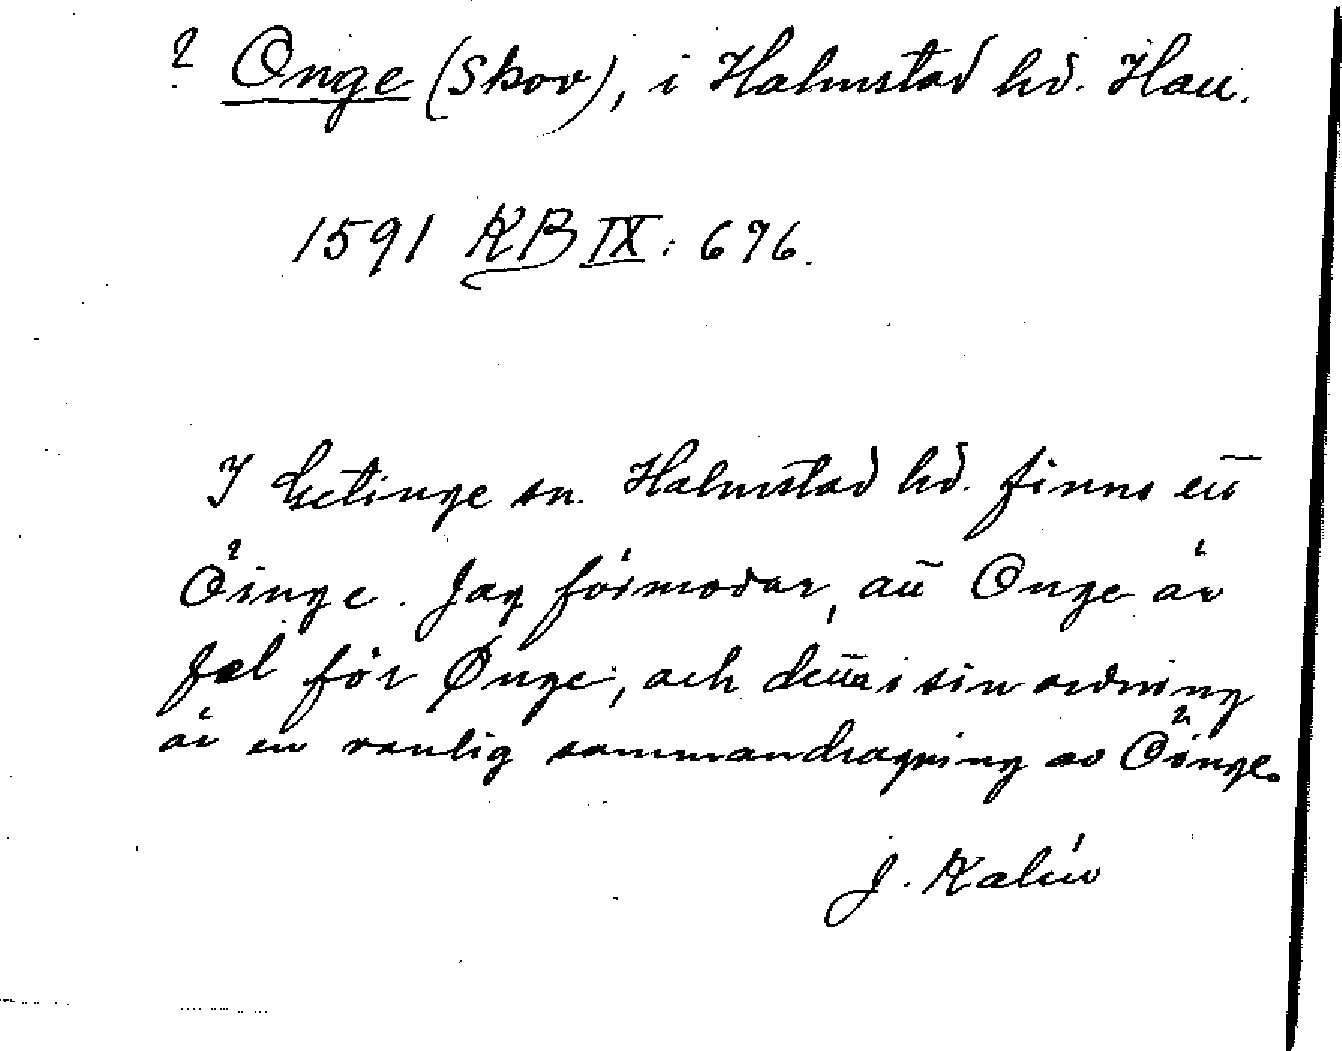 ? Onge (Skov), i Halmstad hd. Hall.
1591 KB IX: 676.
I Getinge sn. Halmstad hd. finns ett
Öinge. Jag förmodar, att Onge är
fel för Ønge, och detta i sin ordning
är en vanlig sammandragning av Öinge.
J. Kalén